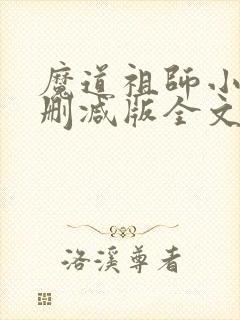 魔道祖師小
刪減版全文
洛溪尊者